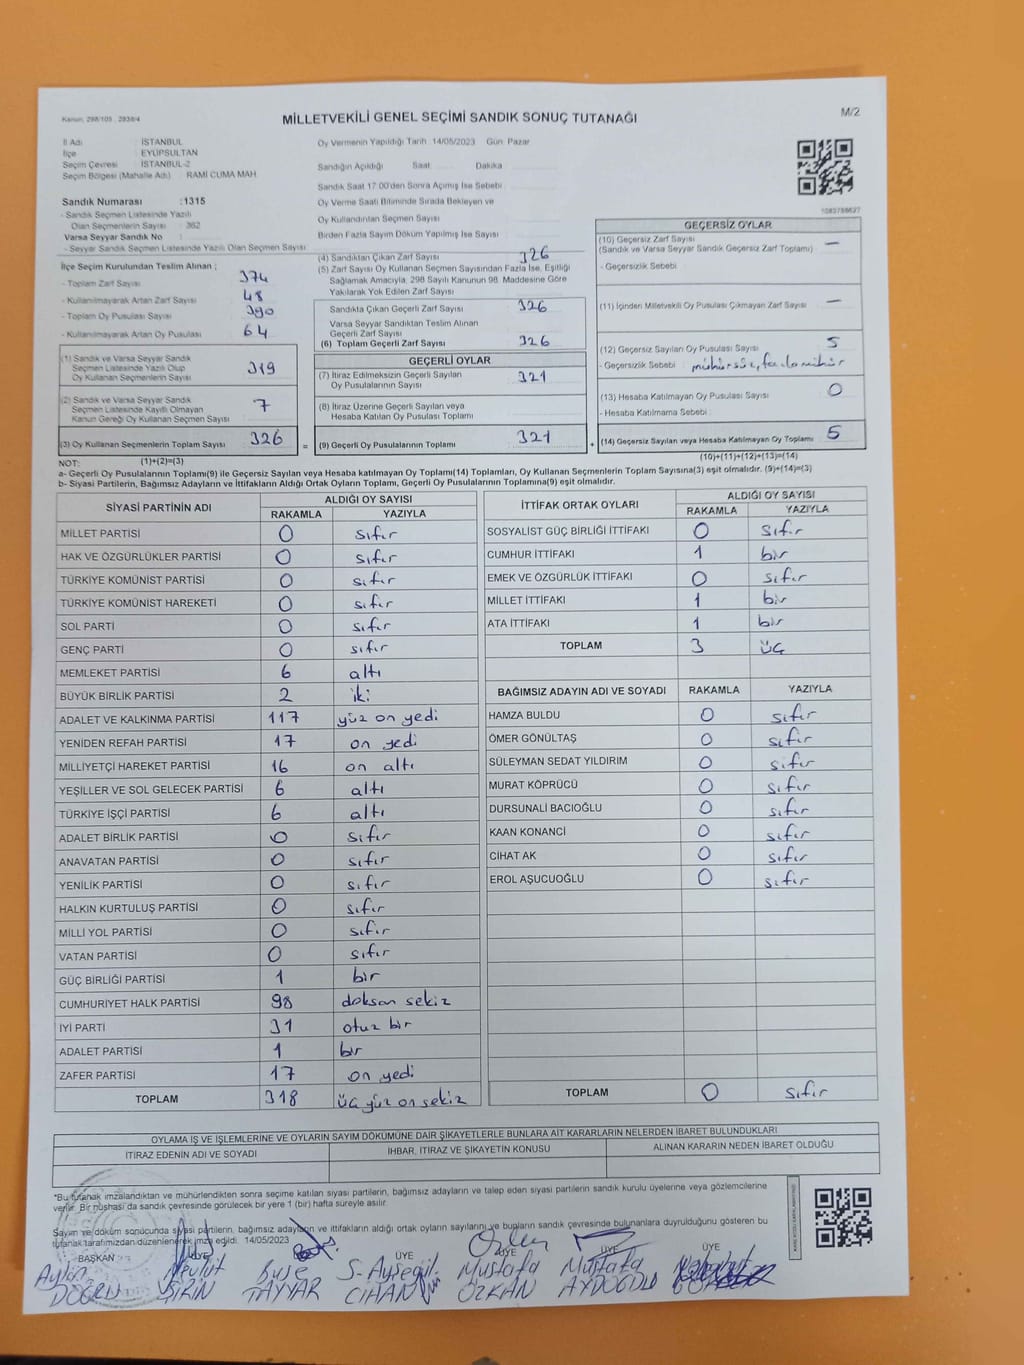 Kanun, 298/105 , 2839/4
MİLLETVEKİLİ GENEL SEÇİMİ SANDIK SONUÇ TUTANAĞI
M/2
İl Adı : İSTANBUL
İlçe : EYÜPSULTAN
Seçim Çevresi : İSTANBUL-2
Seçim Bölgesi (Mahalle Adı) : RAMİ CUMA MAH.
Sandık Numarası :1315
- Sandık Seçmen Listesinde Yazılı
Olan Seçmenlerin Sayısı : 362
Varsa Seyyar Sandık No :
- Seyyar Sandık Seçmen Listesinde Yazılı Olan Seçmen Sayısı :
Oy Vermenin Yapıldığı Tarih :14/05/2023 Gün: Pazar
Sandığın Açıldığı Saat Dakika
Sandık Saat 17.00'den Sonra Açılmış İse Sebebi :
Oy Verme Saati Bitiminde Sırada Bekleyen ve
Oy Kullandırılan Seçmen Sayısı :
Birden Fazla Sayım Döküm Yapılmış İse Sayısı :
İlçe Seçim Kurulundan Teslim Alınan ;
- Toplam Zarf Sayısı : 374
- Kullanılmayarak Artan Zarf Sayısı : 48
- Toplam Oy Pusulası Sayısı : 390
- Kullanılmayarak Artan Oy Pusulası : 64
(1) Sandık ve Varsa Seyyar Sandık
Seçmen Listesinde Yazılı Olup
Oy Kullanan Seçmenlerin Sayısı : 319
(2) Sandık ve Varsa Seyyar Sandık
Seçmen Listesinde Kayıtlı Olmayan
Kanun Gereği Oy Kullanan Seçmen Sayısı : 7
(3) Oy Kullanan Seçmenlerin Toplam Sayısı : 326
(4) Sandıktan Çıkan Zarf Sayısı : 326
(5) Zarf Sayısı Oy Kullanan Seçmen Sayısından Fazla İse, Eşitliği
Sağlamak Amacıyla, 298 Sayılı Kanunun 98. Maddesine Göre
Yakılarak Yok Edilen Zarf Sayısı :
Sandıkta Çıkan Geçerli Zarf Sayısı : 326
Varsa Seyyar Sandıktan Teslim Alınan
Geçerli Zarf Sayısı :
(6) Toplam Geçerli Zarf Sayısı : 326
GEÇERLİ OYLAR
(7) İtiraz Edilmeksizin Geçerli Sayılan
Oy Pusulalarının Sayısı : 321
(8) İtiraz Üzerine Geçerli Sayılan veya
Hesaba Katılan Oy Pusulası Toplamı :
= (9) Geçerli Oy Pusulalarının Toplamı : 321 +
1083788627
GEÇERSİZ OYLAR
(10) Geçersiz Zarf Sayısı : —
(Sandık ve Varsa Seyyar Sandık Geçersiz Zarf Toplamı)
- Geçersizlik Sebebi :
(11) İçinden Milletvekili Oy Pusulası Çıkmayan Zarf Sayısı : —
(12) Geçersiz Sayılan Oy Pusulası Sayısı : 5
- Geçersizlik Sebebi : mühürsüz, fazla mühür
(13) Hesaba Katılmayan Oy Pusulası Sayısı : 0
- Hesaba Katılmama Sebebi :
(14) Geçersiz Sayılan veya Hesaba Katılmayan Oy Toplamı : 5
NOT: (1)+(2)=(3)
(10)+(11)+(12)+(13)=(14)
a- Geçerli Oy Pusulalarının Toplamı(9) ile Geçersiz Sayılan veya Hesaba katılmayan Oy Toplamı(14) Toplamları, Oy Kullanan Seçmenlerin Toplam Sayısına(3) eşit olmalıdır. (9)+(14)=(3)
b- Siyasi Partilerin, Bağımsız Adayların ve İttifakların Aldığı Ortak Oyların Toplamı, Geçerli Oy Pusulalarının Toplamına(9) eşit olmalıdır.
SİYASİ PARTİNİN ADI ALDIĞI OY SAYISI
RAKAMLA YAZIYLA
MİLLET PARTİSİ 0 sıfır
HAK VE ÖZGÜRLÜKLER PARTİSİ 0 sıfır
TÜRKİYE KOMÜNİST PARTİSİ 0 sıfır
TÜRKİYE KOMÜNİST HAREKETİ 0 sıfır
SOL PARTİ 0 sıfır
GENÇ PARTİ 0 sıfır
MEMLEKET PARTİSİ 6 altı
BÜYÜK BİRLİK PARTİSİ 2 iki
ADALET VE KALKINMA PARTİSİ 117 yüz on yedi
YENİDEN REFAH PARTİSİ 17 on yedi
MİLLİYETÇİ HAREKET PARTİSİ 16 on altı
YEŞİLLER VE SOL GELECEK PARTİSİ 6 altı
TÜRKİYE İŞÇİ PARTİSİ 6 altı
ADALET BİRLİK PARTİSİ 0 sıfır
ANAVATAN PARTİSİ 0 sıfır
YENİLİK PARTİSİ 0 sıfır
HALKIN KURTULUŞ PARTİSİ 0 sıfır
MİLLİ YOL PARTİSİ 0 sıfır
VATAN PARTİSİ 0 sıfır
GÜÇ BİRLİĞİ PARTİSİ 1 bir
CUMHURİYET HALK PARTİSİ 98 doksan sekiz
İYİ PARTİ 31 otuz bir
ADALET PARTİSİ 1 bir
ZAFER PARTİSİ 17 on yedi
TOPLAM 318 üç yüz on sekiz
İTTİFAK ORTAK OYLARI ALDIĞI OY SAYISI
RAKAMLA YAZIYLA
SOSYALİST GÜÇ BİRLİĞİ İTTİFAKI 0 sıfır
CUMHUR İTTİFAKI 1 bir
EMEK VE ÖZGÜRLÜK İTTİFAKI 0 sıfır
MİLLET İTTİFAKI 1 bir
ATA İTTİFAKI 1 bir
TOPLAM 3 üç
BAĞIMSIZ ADAYIN ADI VE SOYADI RAKAMLA YAZIYLA
HAMZA BULDU 0 sıfır
ÖMER GÖNÜLTAŞ 0 sıfır
SÜLEYMAN SEDAT YILDIRIM 0 sıfır
MURAT KÖPRÜCÜ 0 sıfır
DURSUNALİ BACIOĞLU 0 sıfır
KAAN KONANCİ 0 sıfır
CİHAT AK 0 sıfır
EROL AŞUCUOĞLU 0 sıfır
TOPLAM 0 sıfır
OYLAMA İŞ VE İŞLEMLERİNE VE OYLARIN SAYIM DÖKÜMÜNE DAİR ŞİKAYETLERLE BUNLARA AİT KARARLARIN NELERDEN İBARET BULUNDUKLARI
İTİRAZ EDENİN ADI VE SOYADI İHBAR, İTİRAZ VE ŞİKAYETİN KONUSU ALINAN KARARIN NEDEN İBARET OLDUĞU
"Bu tutanak imzalandıktan ve mühürlendikten sonra seçime katılan siyasi partilerin, bağımsız adayların ve talep eden siyasi partilerin sandık kurulu üyelerine veya gözlemcilerine
verilir. Bir nüshası da sandık çevresinde görülecek bir yere 1 (bir) hafta süreyle asılır.
Sayım ve döküm sonucunda siyasi partilerin, bağımsız adayların ve ittifakların aldığı ortak oyların sayılarını ve bunların sandık çevresinde bulunanlara duyrulduğunu gösteren bu
tutanak tarafımızdan düzenlenerek imza edildi. 14/05/2023
BAŞKAN ÜYE ÜYE ÜYE ÜYE ÜYE
Aylin Mevlüt Buse S. Ayşegül Mustafa Mustafa
DOĞRU ŞİRİN TAYYAR CİHAN ÖZKAN AYDOĞDU